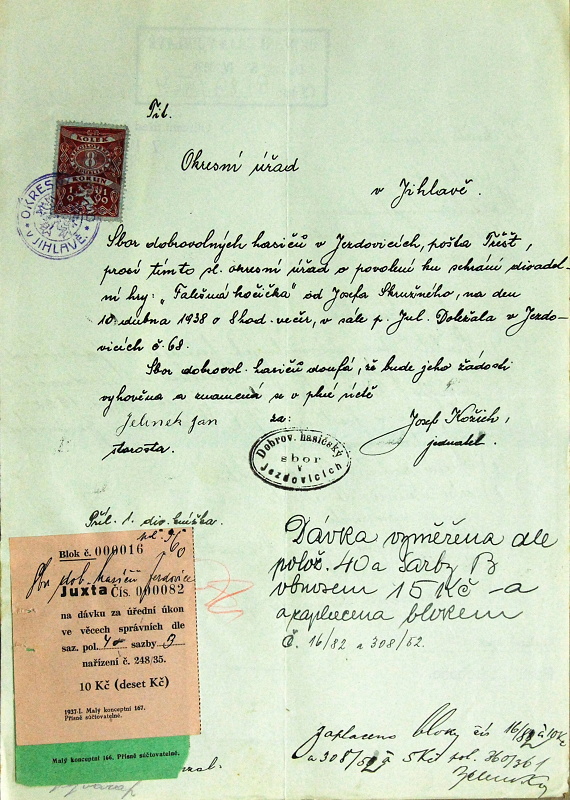 Tit.
KOLEK
8
KORUN
Okresní úřad
v Jihlavě.
OKRES
V JIHLAVĚ
Sbor dobrovolných hasičů v Jezdovicích, pošta Třešť,
prosí tímto sl. okresní úřad o povolení ku sehrání divadel-
ní hry: „Falešná kočička" od Josefa Skružného, na den
10. dubna 1938 o 8 hod. večer, v sále p. Jul. Doležala v Jezdo-
vicích č. 68.
Sbor dobrovol. hasičů doufá, že bude jeho žádosti
vyhověno a znamená se v plné úctě
Jelinek Jan
za:
Josef Kožich,
starosta.
jednatel.
Dobrov. hasičský
sbor
v
Jezdovicích
Příl. 1. div. knížka.
Dávka vyměřena dle
polož. 40 a sazby B
obnosem 15 Kč -a
a zaplacena blokem
č. 16/82 a 308/52.
Blok č. 000016
Sbor dob. hasičů Jezdovice
Juxta Čís. 000082
na dávku za úřední úkon
ve věcech správních dle
saz. pol. 40 sazby B
nařízení č. 248/35.
10 Kč (deset Kč)
1937-I. Malý konceptní 167.
Přísně súčtovatelné.
Malý konceptní 166. Přísně súčtovatelné.
zaplaceno bloky čís 16/82 à 10 Kč
a 308/52 à 5 Kč pol. 360/361